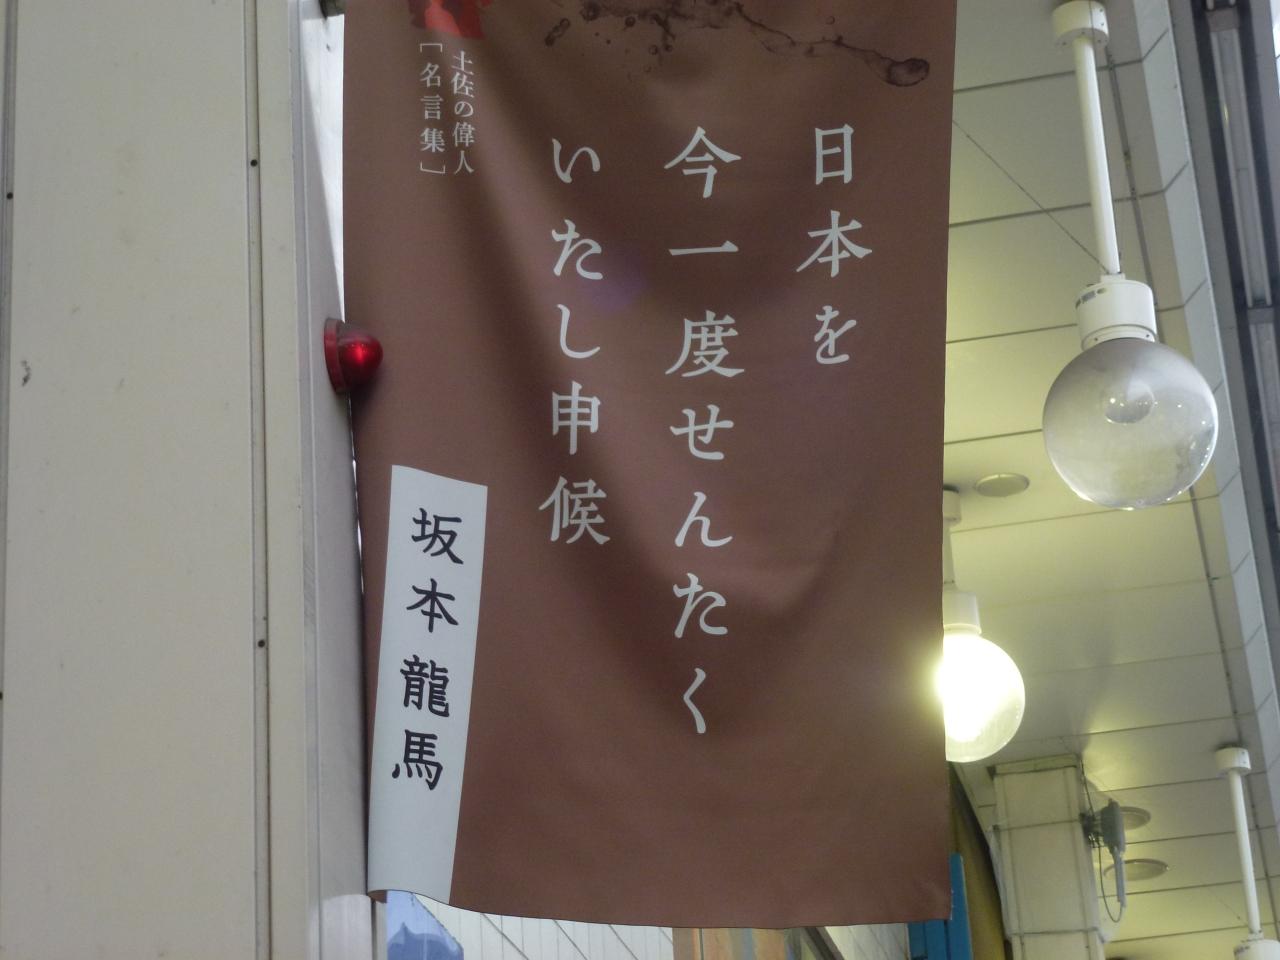 日本を
今一度せんたく
いたし申候
土佐の偉人
［名言集］
坂本龍馬